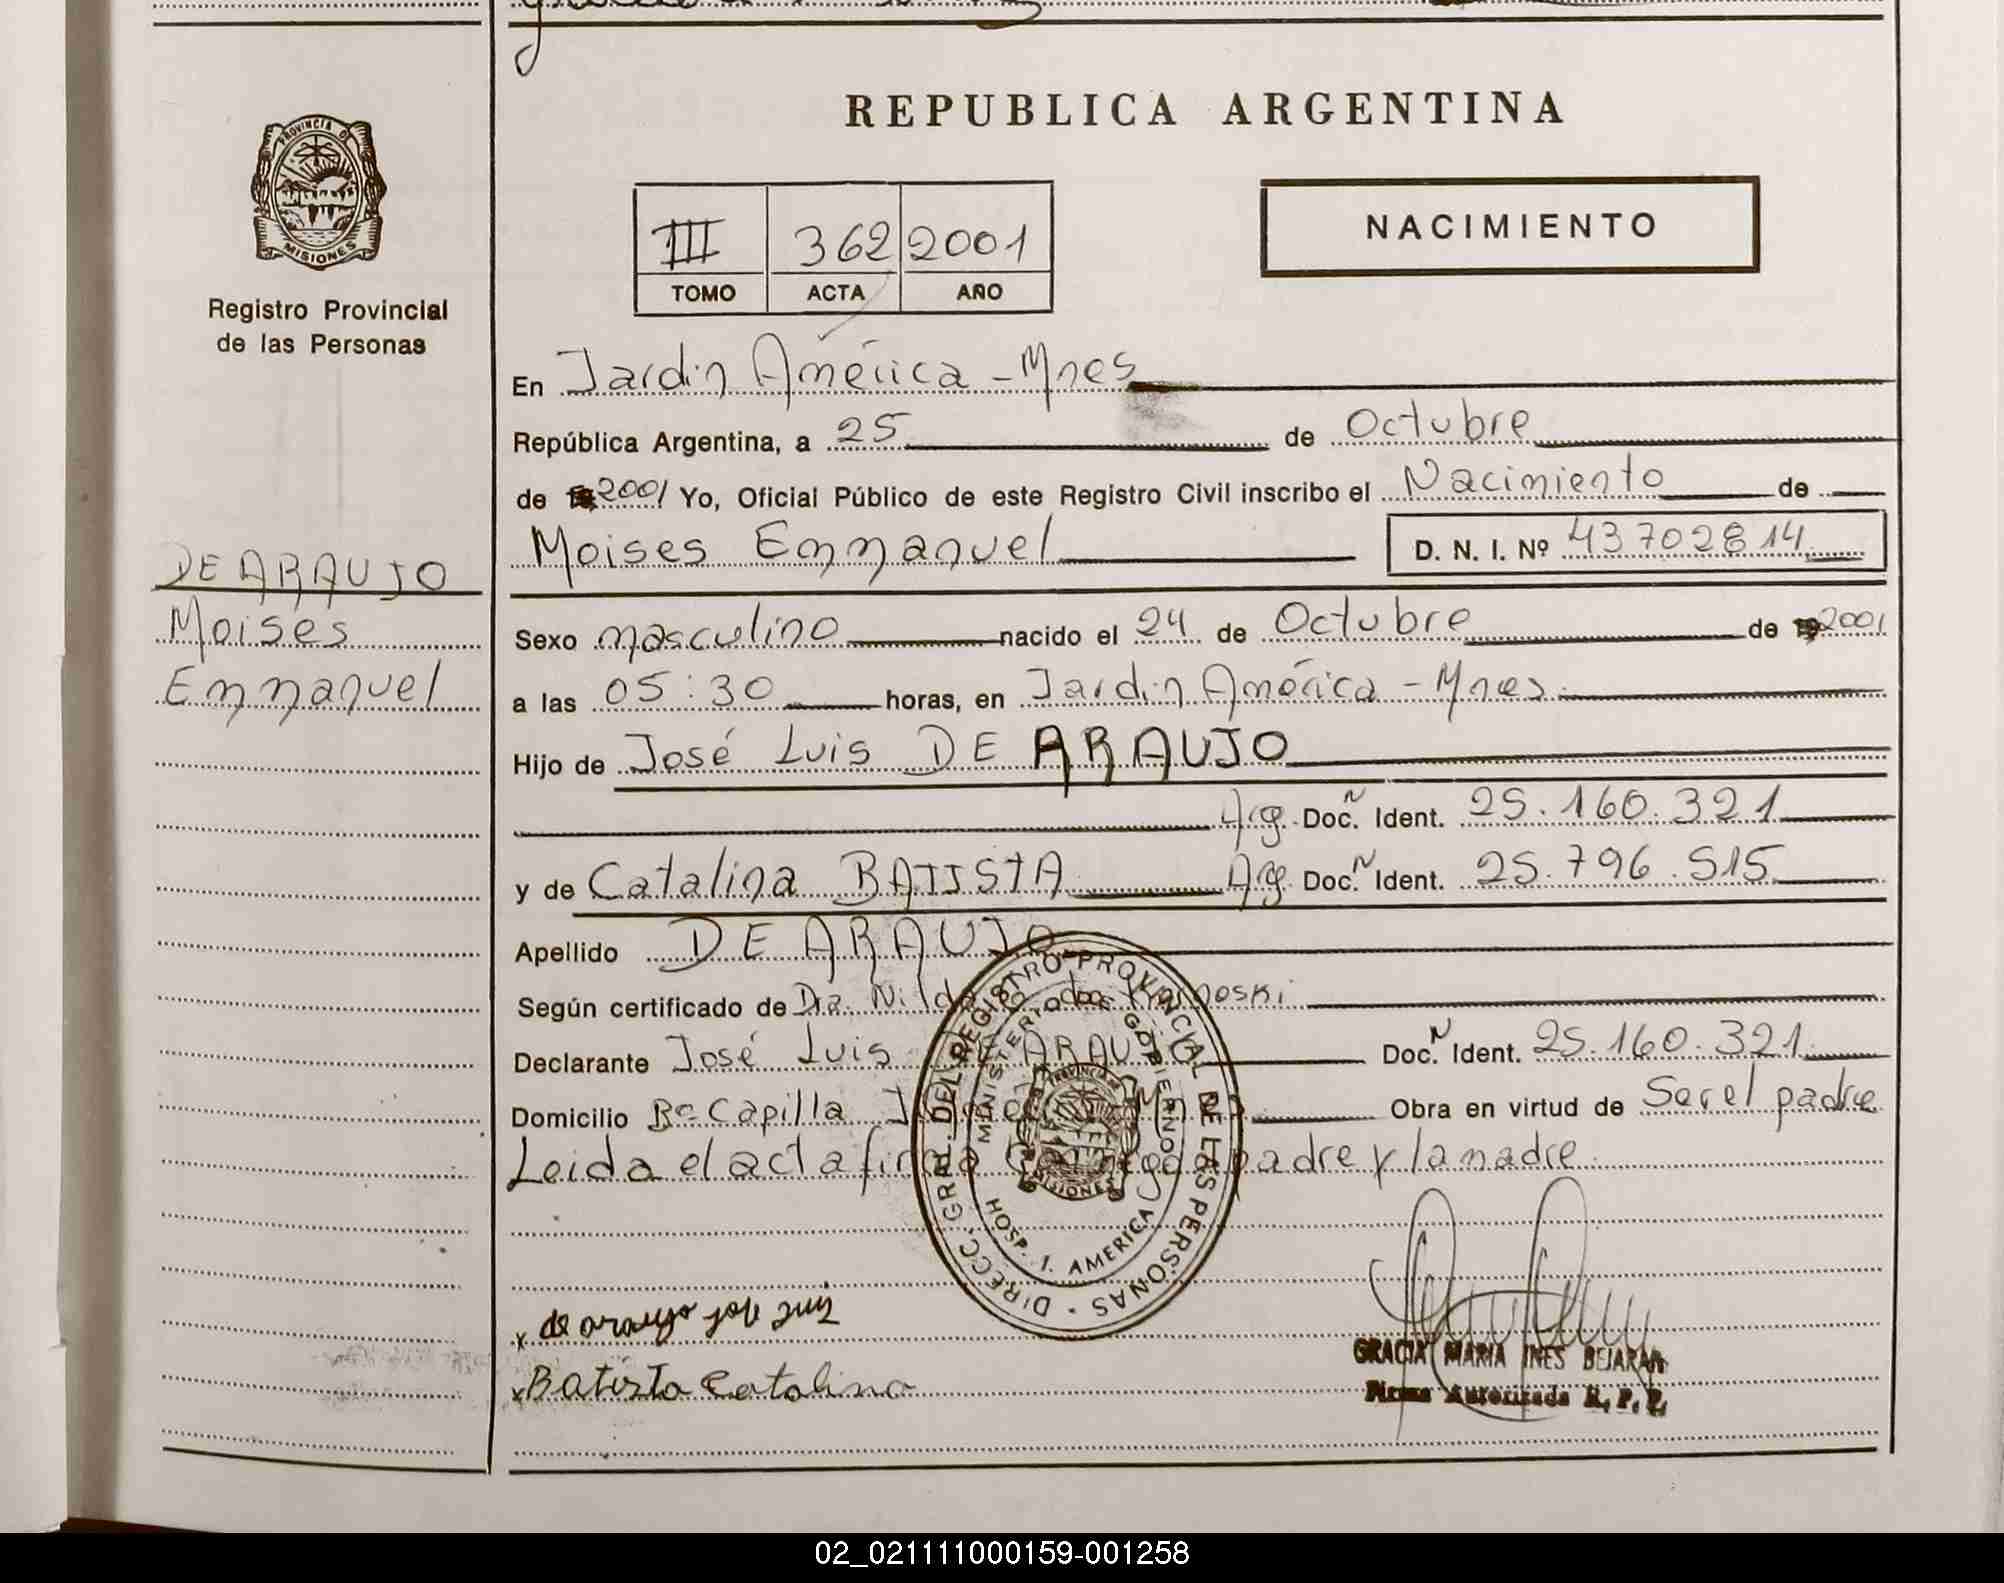 REPUBLICA ARGENTINA
PROVINCIA DE
MISIONES
Registro Provincial
de las Personas
III 362 2001
TOMO ACTA AÑO
NACIMIENTO
En Jardin América - Mnes
República Argentina, a 25 de Octubre
de 2001 Yo, Oficial Público de este Registro Civil inscribo el Nacimiento de
Moises Emmanuel D. N. I. Nº 43702814
DE ARAUJO
Moises
Emmanuel
Sexo masculino nacido el 24 de Octubre de 2001
a las 05:30 horas, en Jardin América - Mnes.
Hijo de José Luis DE ARAUJO
Arg. Doc. Ident. 25.160.321
y de Catalina BATISTA Arg. Doc. Ident. 25.796.515
Apellido DE ARAUJO
Según certificado de Dra. Nilda
Declarante José Luis DE ARAUJO Doc. Ident. 25.160.321
Domicilio Bº Capilla Obra en virtud de Ser el padre
Leida el acta firma padre y la madre.
DIRECC. GRAL. DEL REGISTRO PROVINCIAL DE LAS PERSONAS
MINISTERIO DE GOBIERNO
PROVINCIA DE
MISIONES
HOSP. J. AMERICA
x de araujo jose luis
x Batista Catalina
GRACIA MARIA INES BEJARAN
Firma Autorizada R. P. P.
02_021111000159-001258